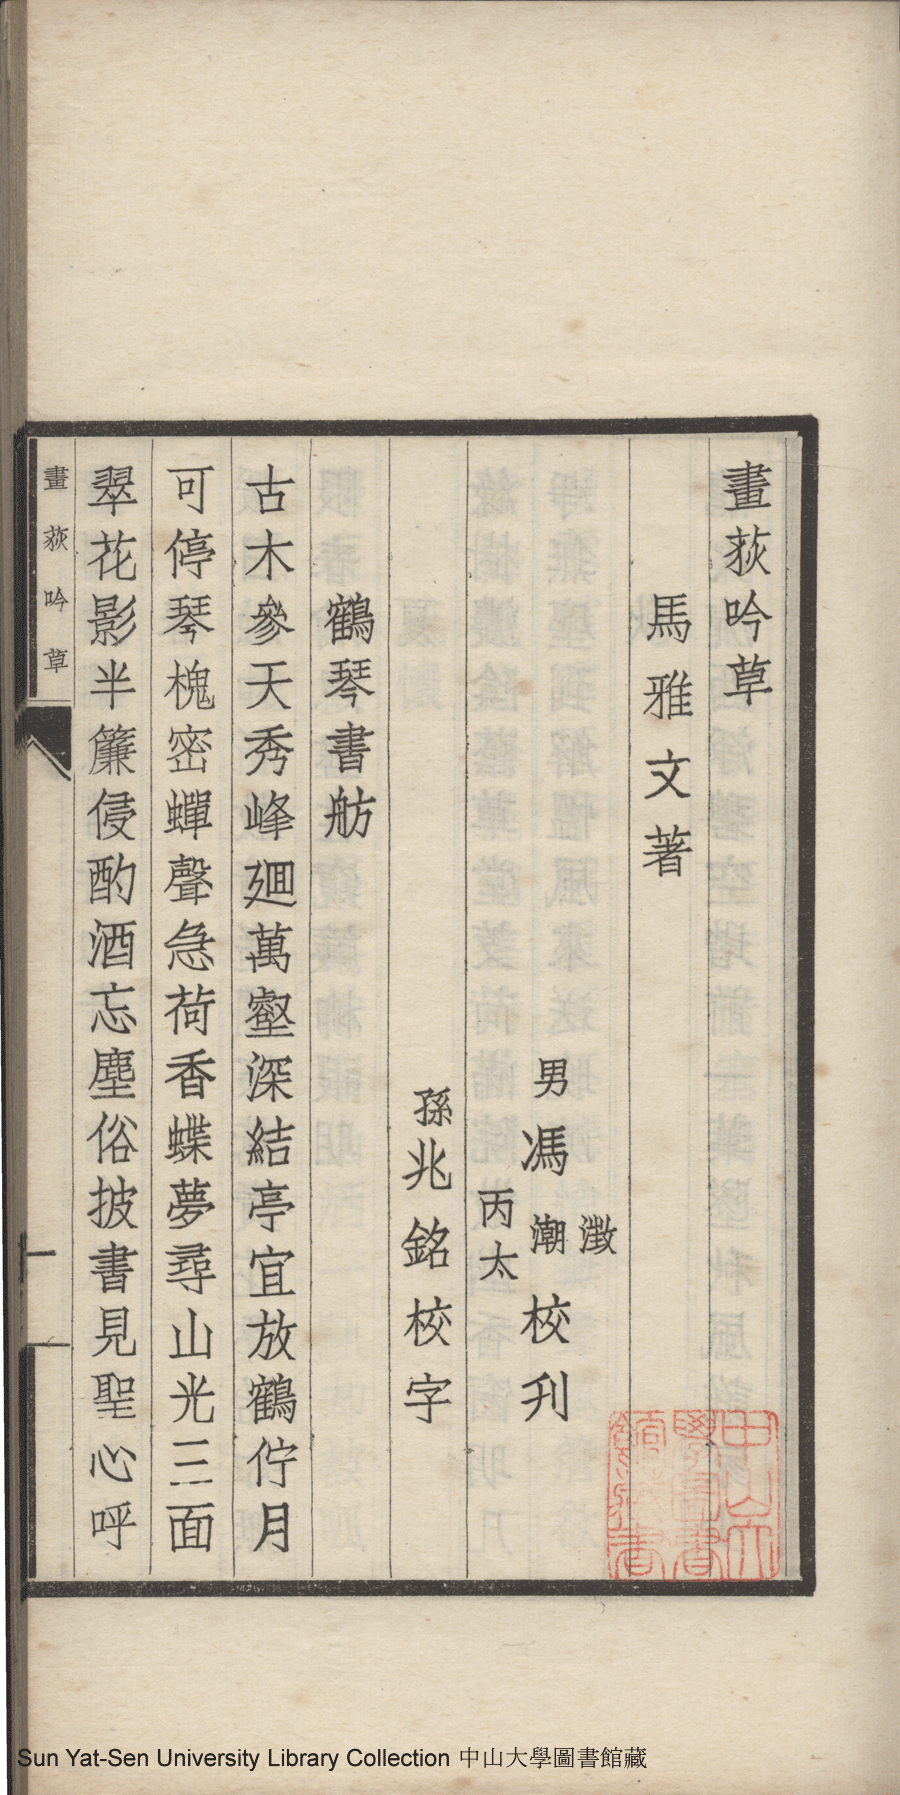 畫荻吟草
馬雅文著
澂
男馮潮校刋
丙太
孫兆銘校字
鶴琴書舫
古木參天秀峰廻萬壑深結亭宜放鶴佇月
可停琴槐密蟬聲急荷香蝶夢尋山光三面
翠花影半簾侵酌酒忘塵俗披書見聖心呼
畫荻吟草
一
中山大學圖書館藏書
Sun Yat-Sen University Library Collection 中山大學圖書館藏